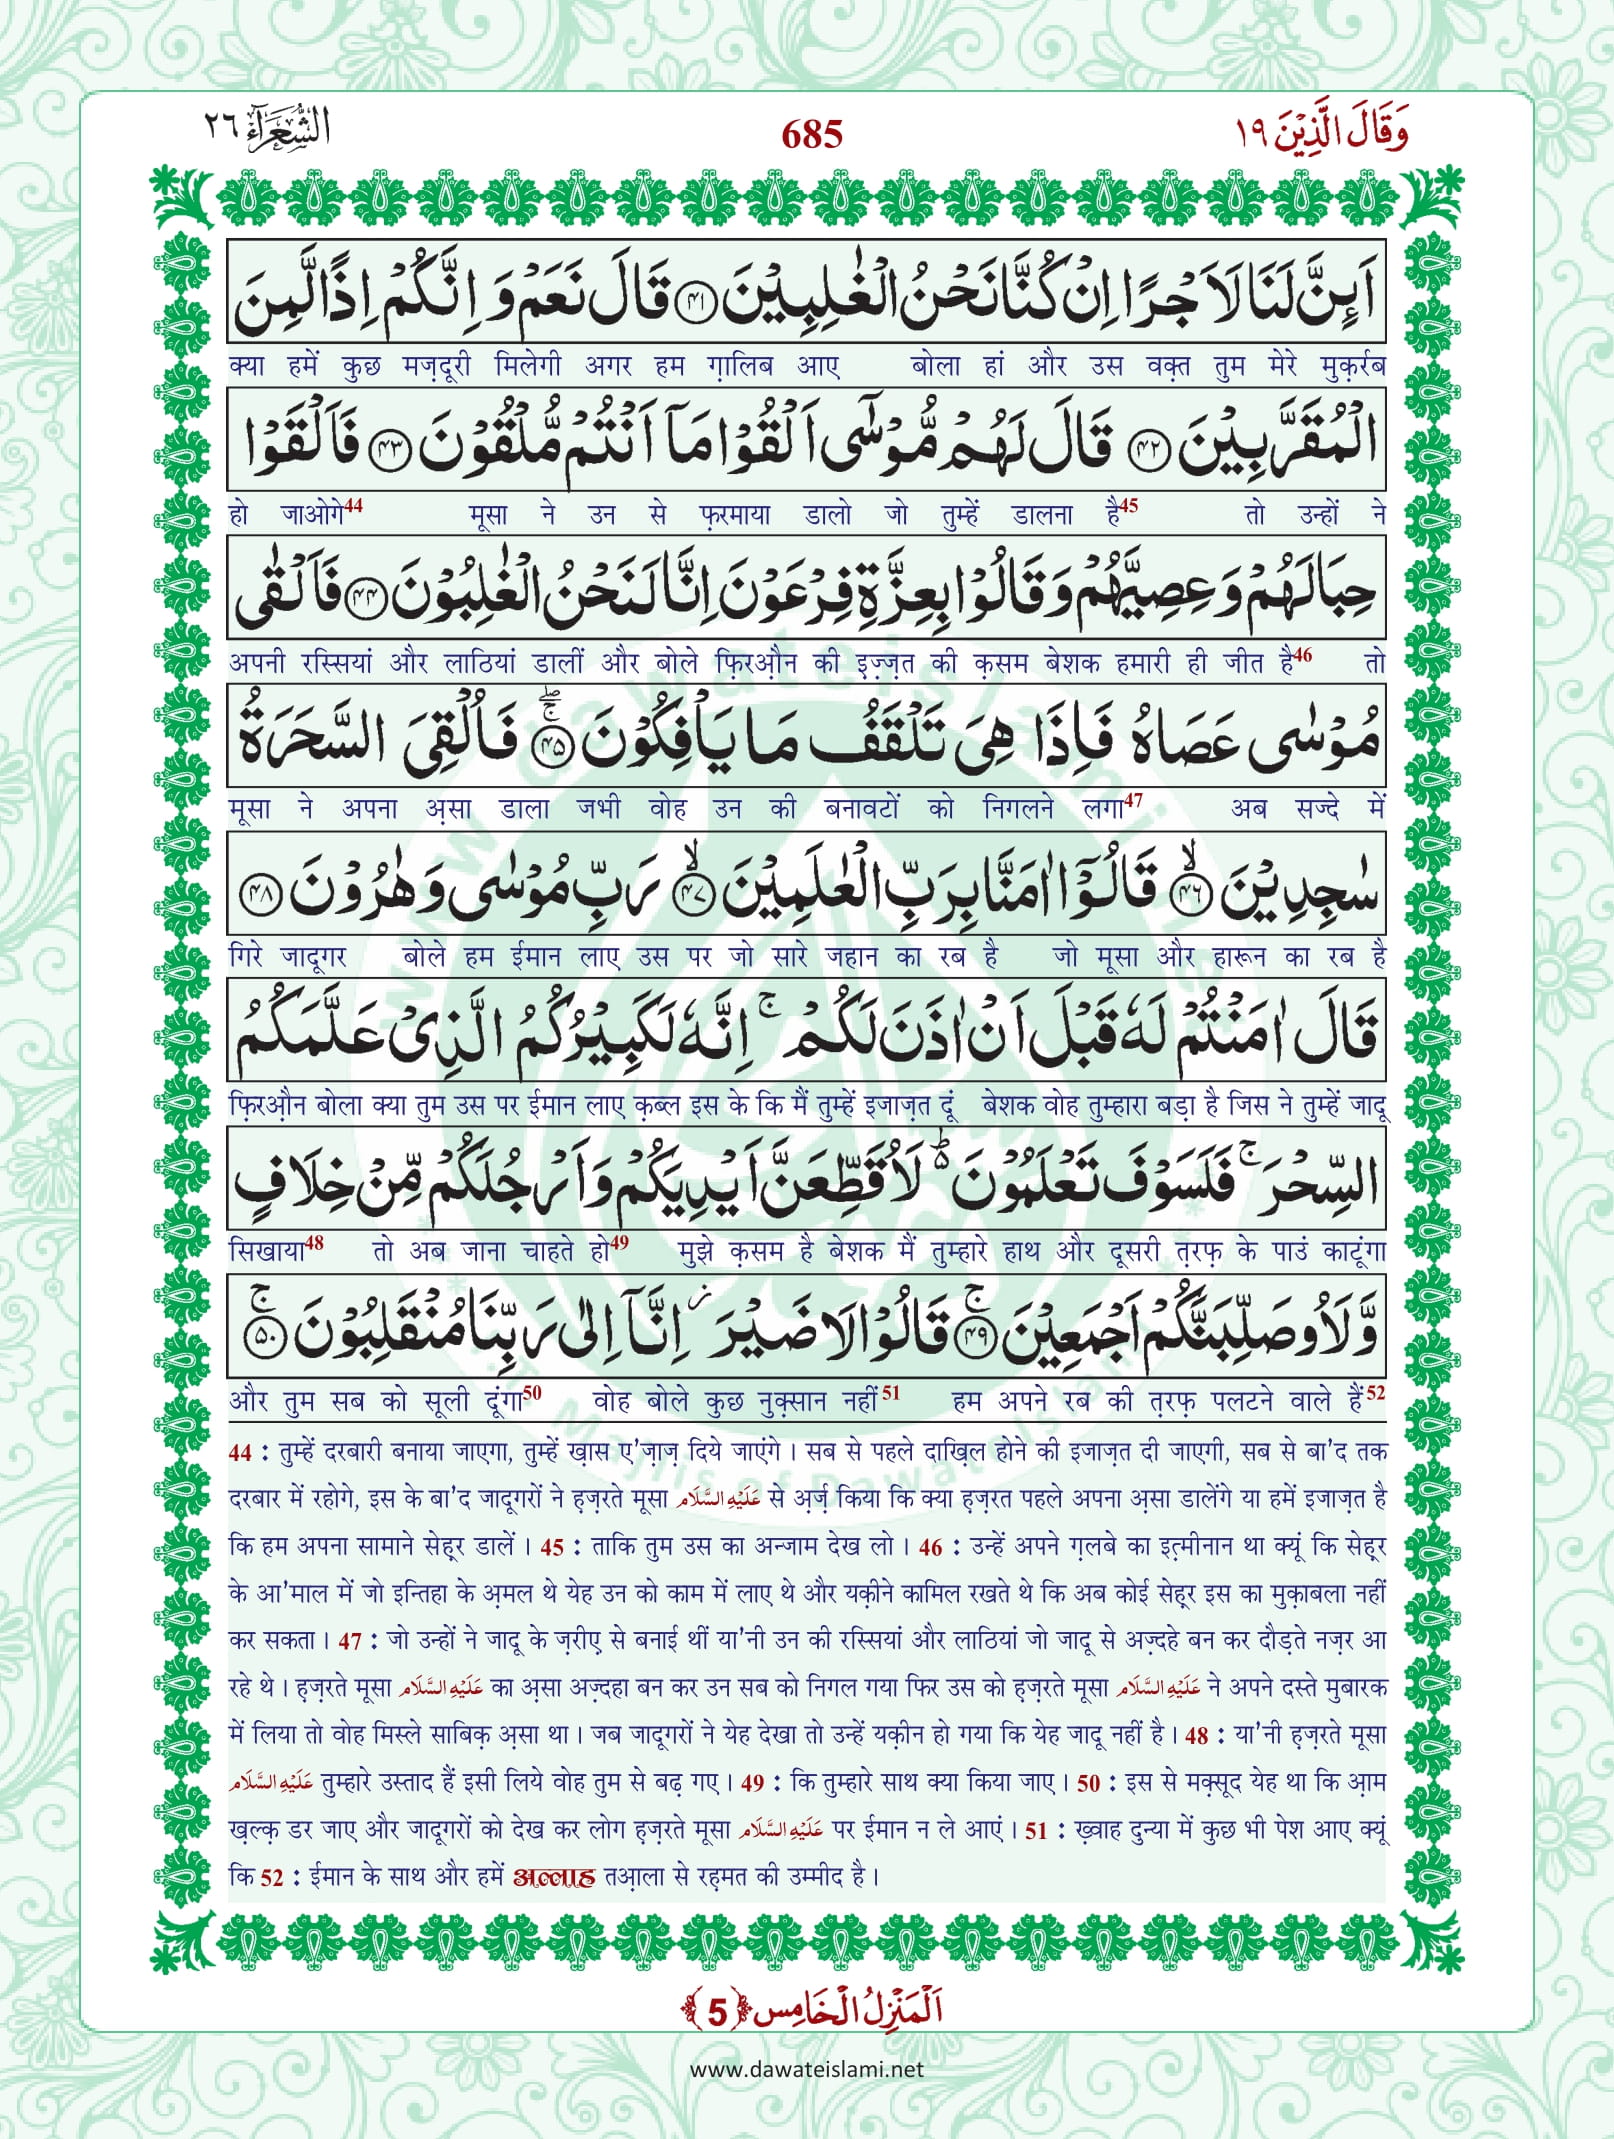 وَقَالَ الَّذِيْنَ ١٩
685
الشُّعَرَآء ٢٦
اَىِٕنَّ لَنَا لَاَجْرًا اِنْ كُنَّا نَحْنُ الْغٰلِبِيْنَ ﴿۴۱﴾ قَالَ نَعَمْ وَ اِنَّكُمْ اِذًا لَّمِنَ
क्या हमें कुछ मज़दूरी मिलेगी अगर हम ग़ालिब आए बोला हां और उस वक़्त तुम मेरे मुक़र्रब
الْمُقَرَّبِيْنَ ﴿۴۲﴾ قَالَ لَهُمْ مُّوْسٰۤى اَلْقُوْا مَاۤ اَنْتُمْ مُّلْقُوْنَ ﴿۴۳﴾ فَاَلْقَوْا
हो जाओगे44 मूसा ने उन से फ़रमाया डालो जो तुम्हें डालना है45 तो उन्हों ने
حِبَالَهُمْ وَ عِصِيَّهُمْ وَ قَالُوْا بِعِزَّةِ فِرْعَوْنَ اِنَّا لَنَحْنُ الْغٰلِبُوْنَ ﴿۴۴﴾ فَاَلْقٰى
अपनी रस्सियां और लाठियां डालीं और बोले फ़िरऔ़न की इ़ज़्ज़त की क़सम बेशक हमारी ही जीत है46 तो
مُوْسٰى عَصَاهُ فَاِذَا هِيَ تَلْقَفُ مَا يَاْفِكُوْنَ ﴿۴۵﴾ۚۖ فَاُلْقِيَ السَّحَرَةُ
मूसा ने अपना अ़सा डाला जभी वोह उन की बनावटों को निगलने लगा47 अब सज्दे में
سٰجِدِيْنَ ﴿۴۶﴾ۙ قَالُوْۤا اٰمَنَّا بِرَبِّ الْعٰلَمِيْنَ ﴿۴۷﴾ۙ رَبِّ مُوْسٰى وَ هٰرُوْنَ ﴿۴۸﴾
गिरे जादूगर बोले हम ईमान लाए उस पर जो सारे जहान का रब है जो मूसा और हारून का रब है
قَالَ اٰمَنْتُمْ لَهٗ قَبْلَ اَنْ اٰذَنَ لَكُمْ ۚ اِنَّهٗ لَكَبِيْرُكُمُ الَّذِيْ عَلَّمَكُمُ
फ़िरऔ़न बोला क्या तुम उस पर ईमान लाए क़ब्ल इस के कि मैं तुम्हें इजाज़त दूं बेशक वोह तुम्हारा बड़ा है जिस ने तुम्हें जादू
السِّحْرَ ۚ فَلَسَوْفَ تَعْلَمُوْنَ ؕ۬ لَاُقَطِّعَنَّ اَيْدِيَكُمْ وَ اَرْجُلَكُمْ مِّنْ خِلَافٍ
सिखाया48 तो अब जाना चाहते हो49 मुझे क़सम है बेशक मैं तुम्हारे हाथ और दूसरी त़रफ़ के पाउं काटूंगा
وَّ لَاُوصَلِّبَنَّكُمْ اَجْمَعِيْنَ ﴿۴۹﴾ۚ قَالُوْا لَا ضَيْرَ ؗ اِنَّاۤ اِلٰى رَبِّنَا مُنْقَلِبُوْنَ ﴿۵۰﴾ۚ
और तुम सब को सूली दूंगा50 वोह बोले कुछ नुक़्सान नहीं51 हम अपने रब की त़रफ़ पलटने वाले हैं52
44 : तुम्हें दरबारी बनाया जाएगा, तुम्हें ख़ास ए'ज़ाज़ दिये जाएंगे । सब से पहले दाख़िल होने की इजाज़त दी जाएगी, सब से बा'द तक
दरबार में रहोगे, इस के बा'द जादूगरों ने ह़ज़रते मूसा عَلَيْهِ السَّلَام से अ़र्ज़ किया कि क्या ह़ज़रत पहले अपना अ़सा डालेंगे या हमें इजाज़त है
कि हम अपना सामाने सेह़्र डालें । 45 : ताकि तुम उस का अन्जाम देख लो । 46 : उन्हें अपने ग़लबे का इत़्मीनान था क्यूं कि सेह़्र
के आ'माल में जो इन्तिहा के अ़मल थे येह उन को काम में लाए थे और यक़ीने कामिल रखते थे कि अब कोई सेह़्र इस का मुक़ाबला नहीं
कर सकता । 47 : जो उन्हों ने जादू के ज़रीए़ से बनाई थीं या'नी उन की रस्सियां और लाठियां जो जादू से अज़्दहे बन कर दौड़ते नज़र आ
रहे थे । ह़ज़रते मूसा عَلَيْهِ السَّلَام का अ़सा अज़्दहा बन कर उन सब को निगल गया फिर उस को ह़ज़रते मूसा عَلَيْهِ السَّلَام ने अपने दस्ते मुबारक
में लिया तो वोह मिस्ले साबिक़ अ़सा था । जब जादूगरों ने येह देखा तो उन्हें यक़ीन हो गया कि येह जादू नहीं है । 48 : या'नी ह़ज़रते मूसा
عَلَيْهِ السَّلَام तुम्हारे उस्ताद हैं इसी लिये वोह तुम से बढ़ गए । 49 : कि तुम्हारे साथ क्या किया जाए । 50 : इस से मक़्सूद येह था कि आ़म
ख़ल्क़ डर जाए और जादूगरों को देख कर लोग ह़ज़रते मूसा عَلَيْهِ السَّلَام पर ईमान न ले आएं । 51 : ख़्वाह दुन्या में कुछ भी पेश आए क्यूं
कि 52 : ईमान के साथ और हमें अल्लाह तआ़ला से रह़मत की उम्मीद है ।
اَلْمَنْزِلُ الْخَامِس ﴿5﴾
www.dawateislami.net